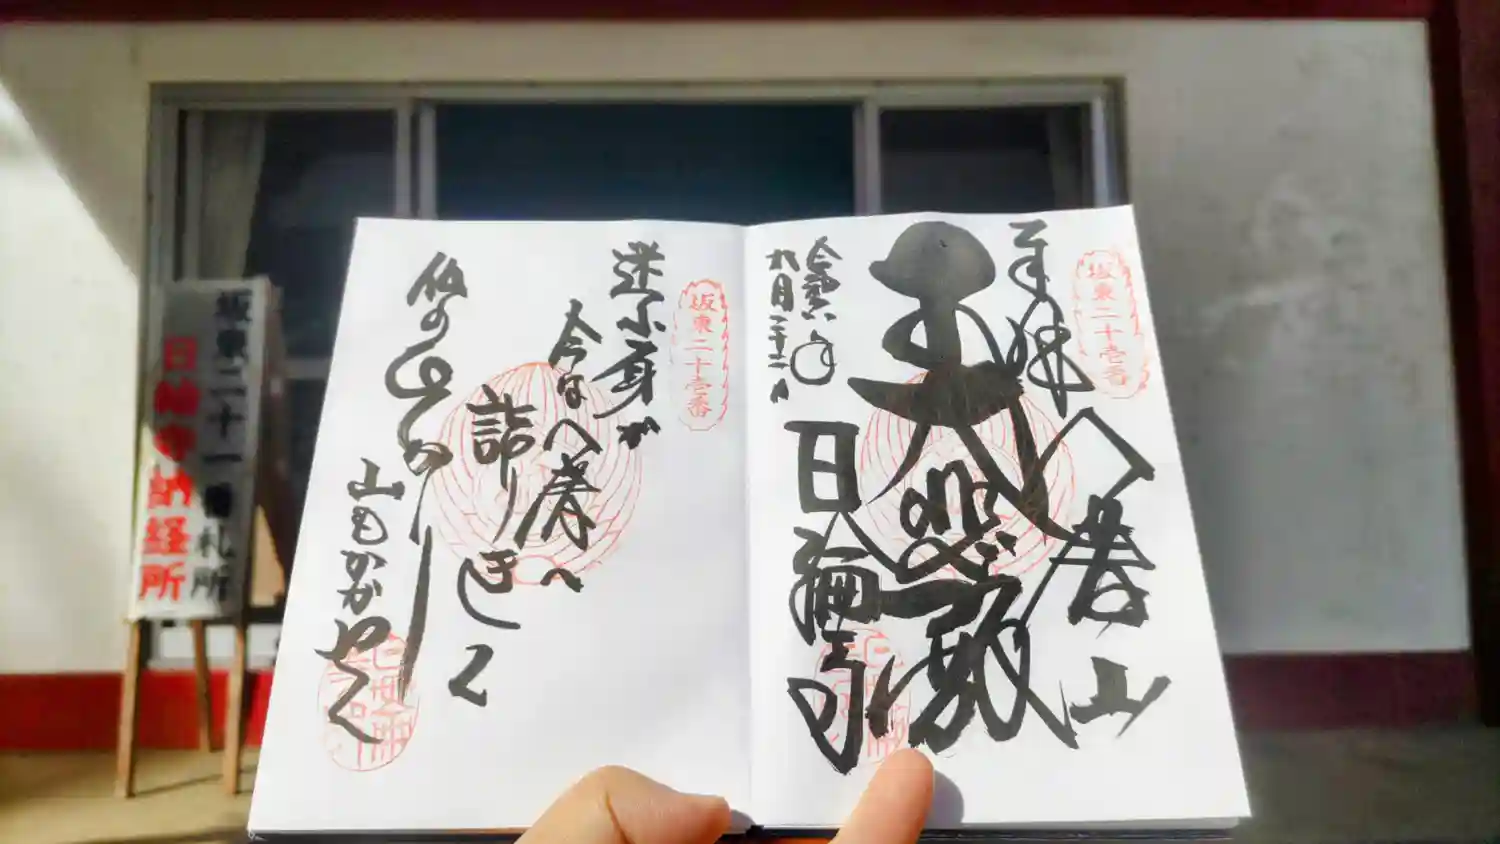 坂東二十壱番
奉拝
八溝山
大悲殿
日輪寺
九月二十二日
坂東二十壱番
迷ふ身が
今は八溝へ
詣りきて
仏のひかり
山もかがやく
坂東二十一番札所
日輪寺納経所